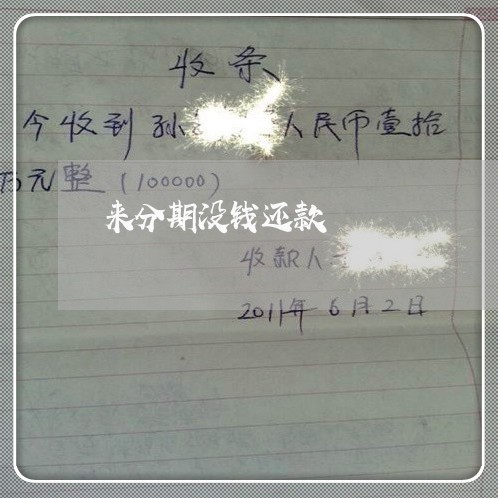 收条
今收到 孙 人民币壹拾
万元整 (100000)
来分期没钱还款
收款人
2011年6月2日